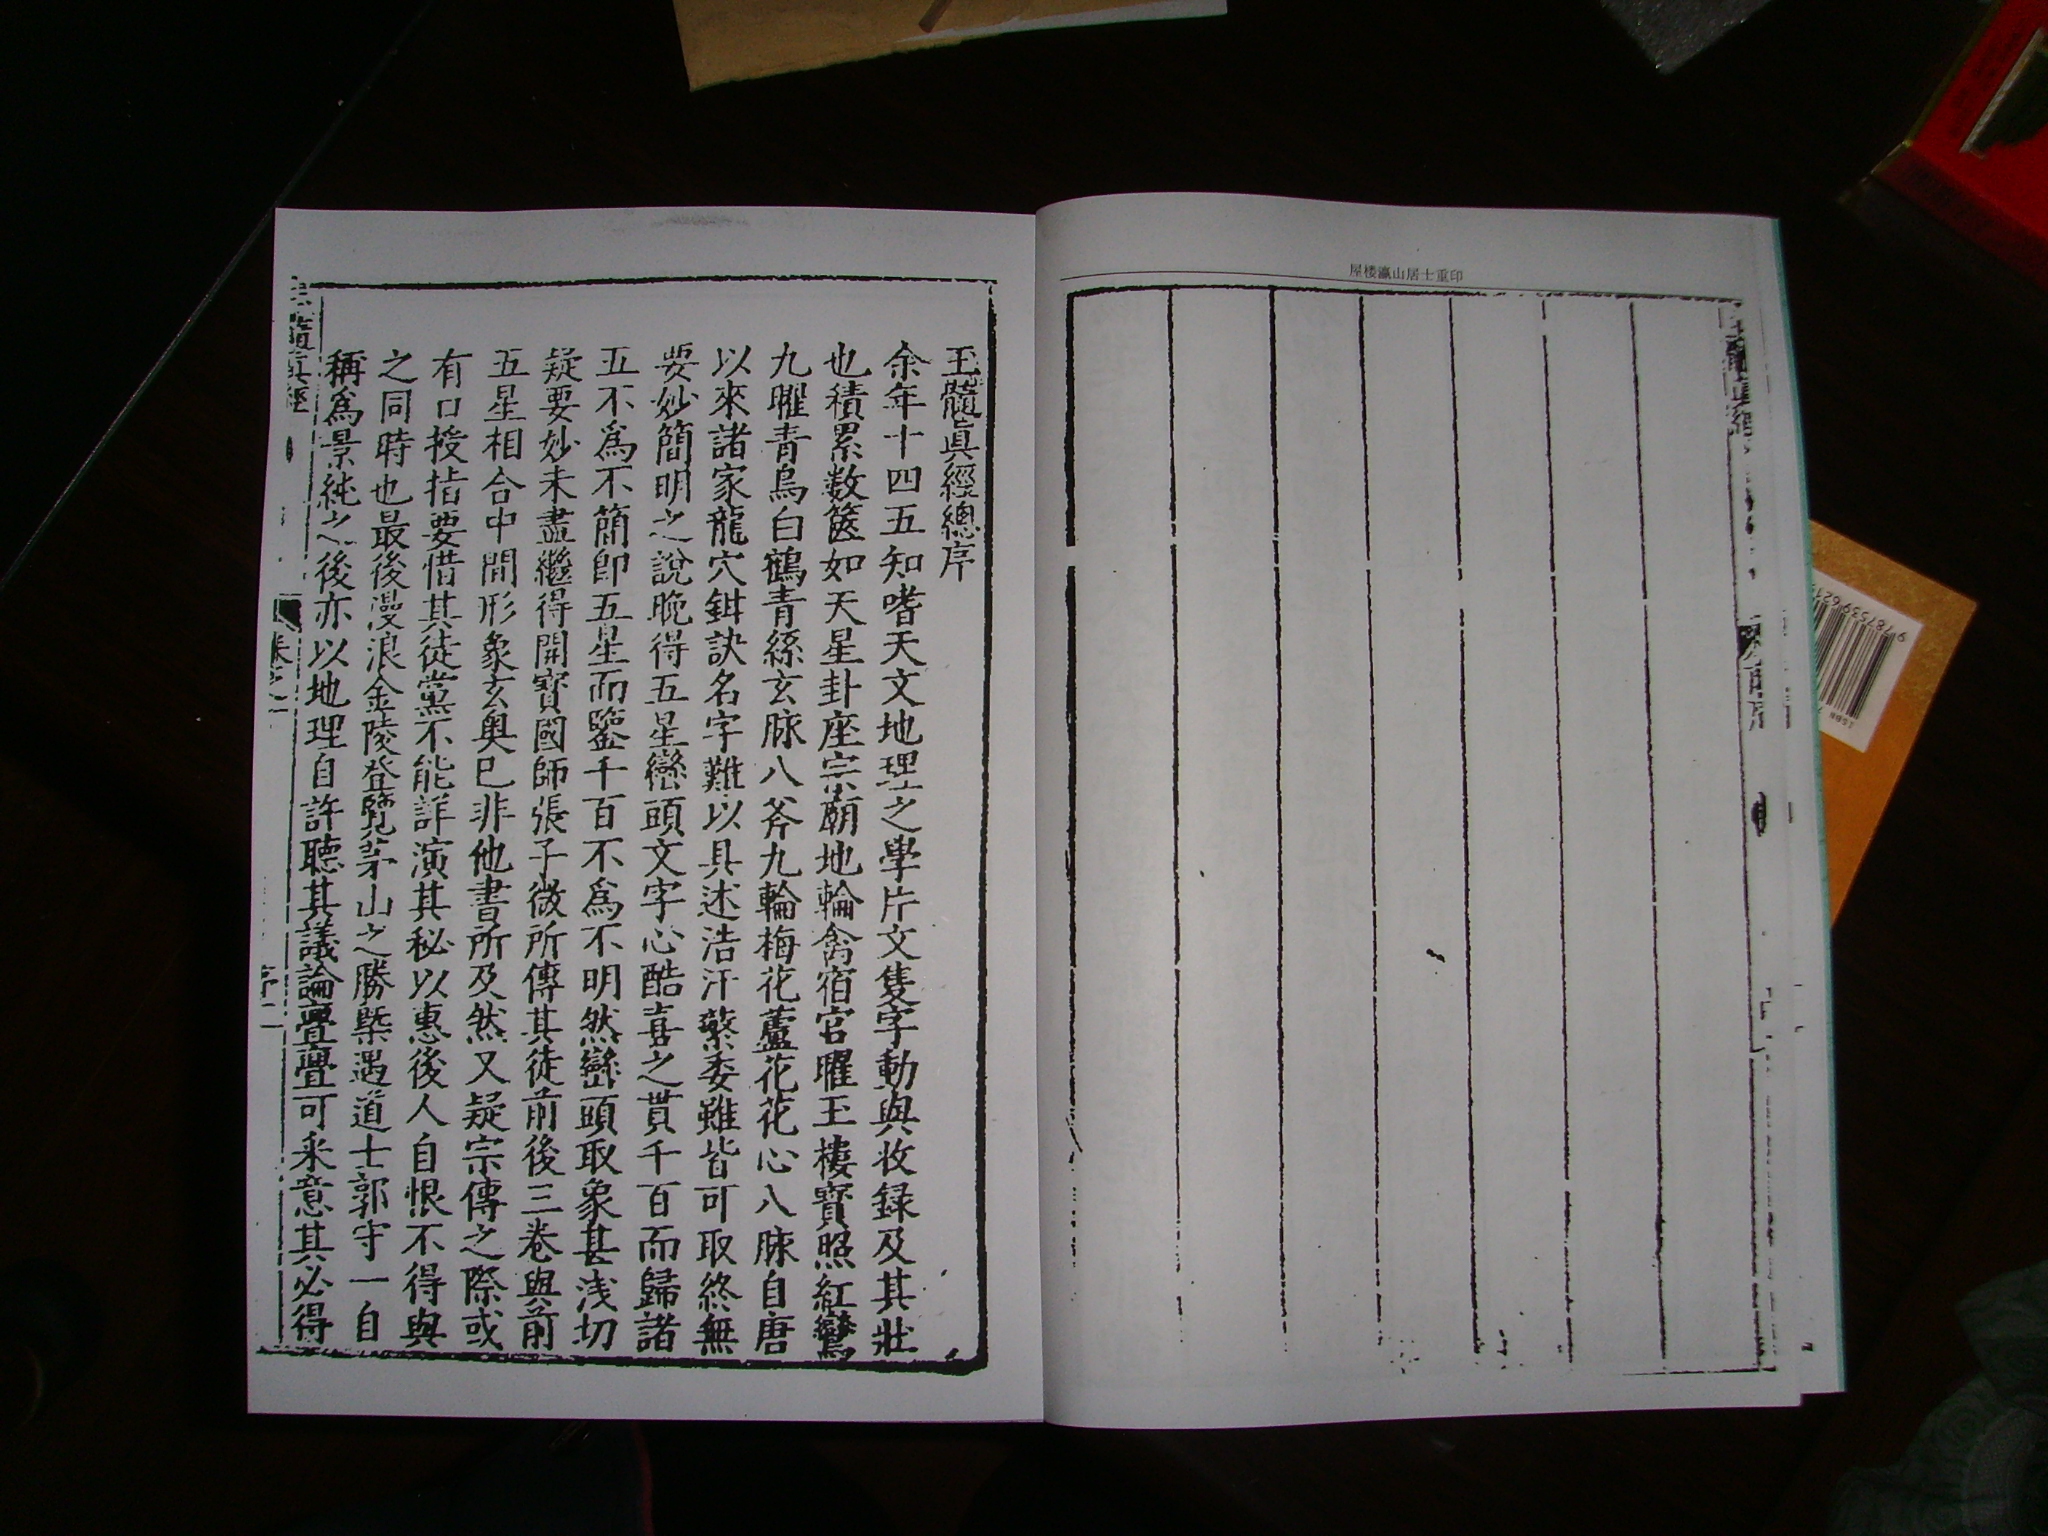 屋楼瀛山居士重印
玉髓真經總序
余年十四五知嗜天文地理之學片文隻字動與收録及其壯
也積累数篋如天星卦座宗廟地輪禽宿官曜玉樓寶照紅鸞
九曜青烏白鶴青絲玄脉八斧九輪梅花蘆花花心八脉自唐
以來諸家龍穴鉗訣名字難以具述浩汗蘩委雖皆可取終無
要妙簡明之說晚得五星巒頭文字心酷喜之貫千百而歸諸
五不為不簡卽五星而鑒千百不為不明然巒頭取象甚浅切
疑要妙未盡繼得開寶國師張子微所傳其徒前後三卷與前
五星相合中間形象玄奥已非他書所及然又疑宗傳之際或
有口授指要惜其徒黨不能詳演其秘以惠後人自恨不得與
之同時也最後漫浪金陵登覽茅山之勝槩遇道士郭守一自
稱為景純之後亦以地理自許聽其議論亹亹可采意其必得
玉髓真經
卷之一
序二
ISBN 7